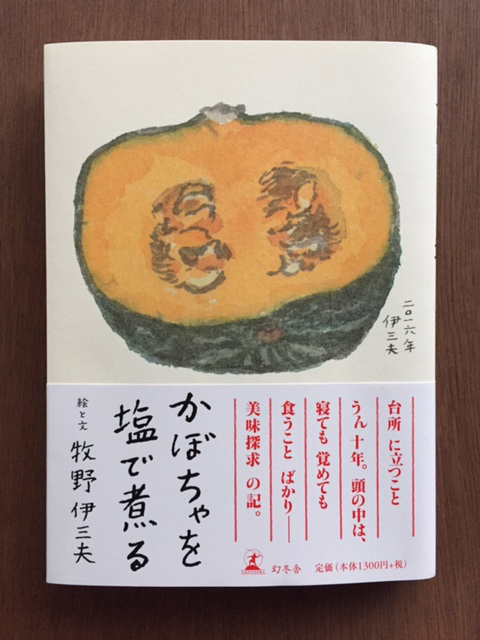 二〇一六年
伊三夫
台所 に立つこと
うん 十年。頭の中は、
寝ても 覚めても
食うこと ばかり──
美味探求 の記。
かぼちゃを
塩で煮る
絵と文 牧野 伊三夫
幻冬舎 定価(本体1300円+税)